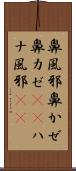 鼻風邪鼻かぜ
鼻カゼ ハ
ナ風邪